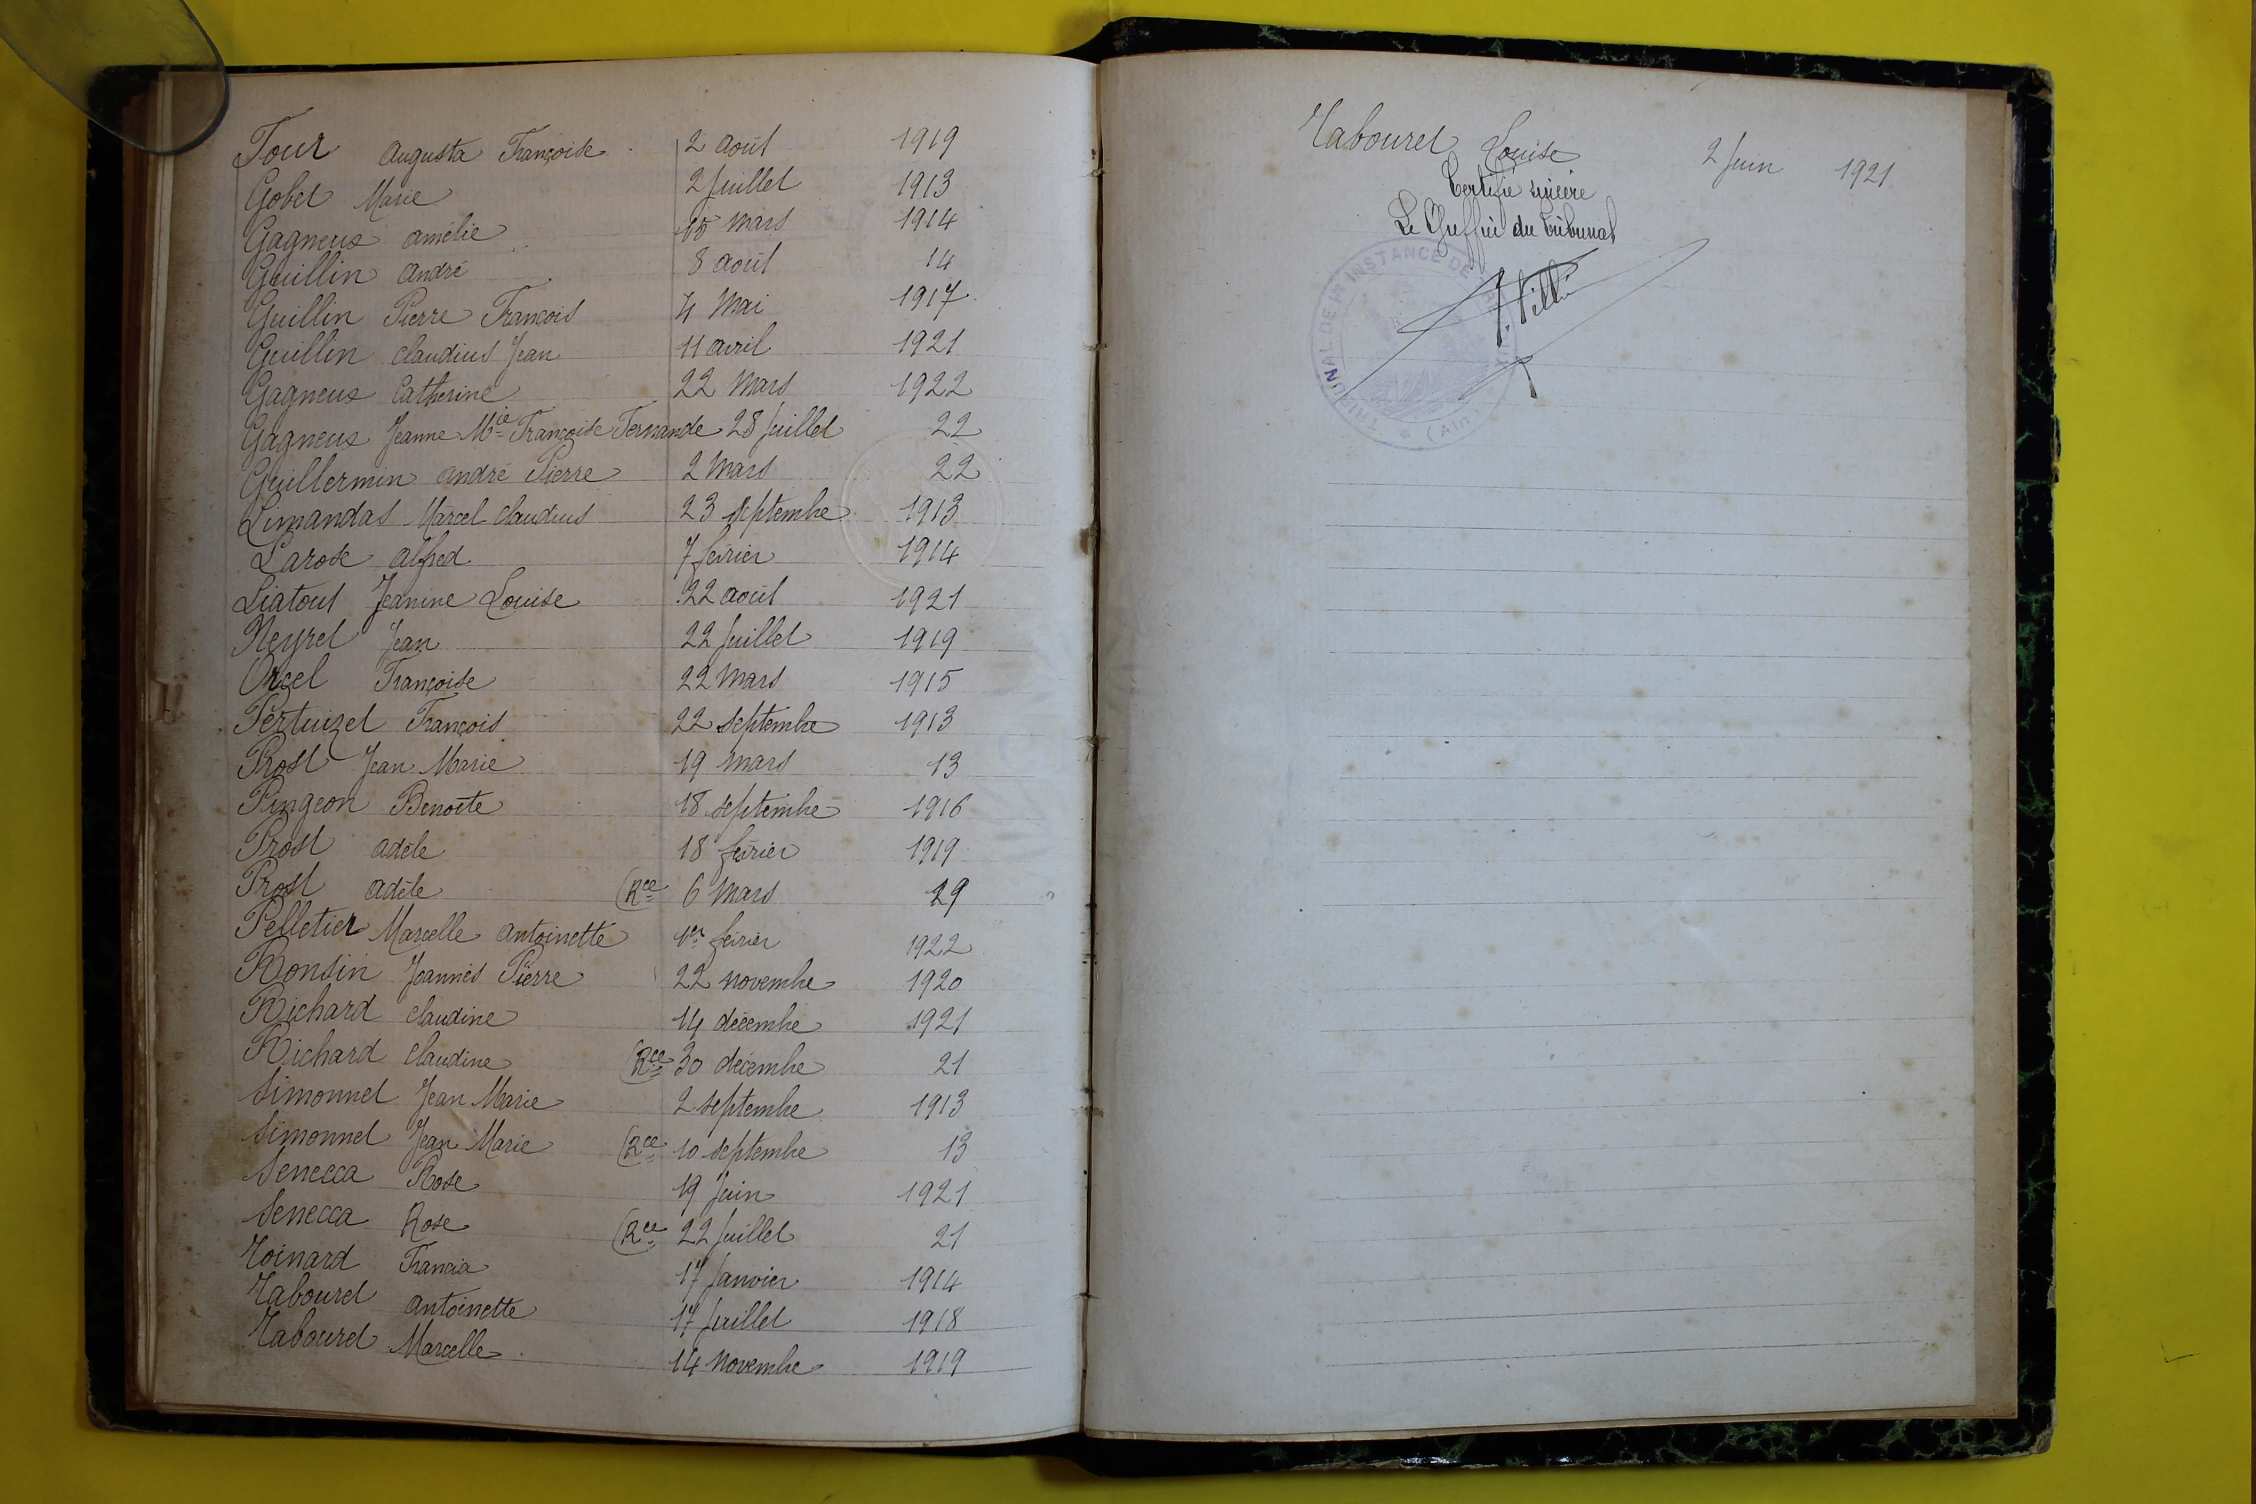 Four Augusta Françoise 2 août 1919
Gobet Marie 2 Juillet 1913
Gagneux Amélie 15 Mars 1914
Guillin André 8 août 14
Guillin Pierre François 4 Mai 1917
Guillin Claudius Jean 11 avril 1921
Gagneux Catherine 22 Mars 1922
Gagneux Jeanne Mie Françoise Fernande 28 Juillet 22
Guillermin André Pierre 2 Mars 22
Limandas Marcel Claudius 23 septembre 1913
Larose Alfred 7 février 1914
Liatout Jeanine Louise 22 août 1921
Neyret Jean 22 Juillet 1919
Orcel Françoise 22 Mars 1915
Pertuizet François 22 septembre 1913
Prost Jean Marie 19 Mars 13
Pingeon Benoîte 18 septembre 1916
Prost Adèle 18 février 1919
Prost Adèle (Rce 6 Mars 19
Pelletier Marcelle Antoinette 1er février 1922
Ronsin Joannès Pierre 22 novembre 1920
Richard Claudine 14 décembre 1921
Richard Claudine (Rce 30 décembre 21
Simonnet Jean Marie 2 septembre 1913
Simonnet Jean Marie (Rce 10 septembre 13
Senecca Rose 19 Juin 1921
Senecca Rose (Rce 22 Juillet 21
Toinard Francia 17 Janvier 1914
Tabouret Antoinette 17 Juillet 1918
Tabouret Marcelle 14 Novembre 1919
Tabouret Louise 2 Juin 1921
Certifié sincère
Le Greffier du Tribunal
TRIBUNAL DE 1re INSTANCE DE
(Ain)